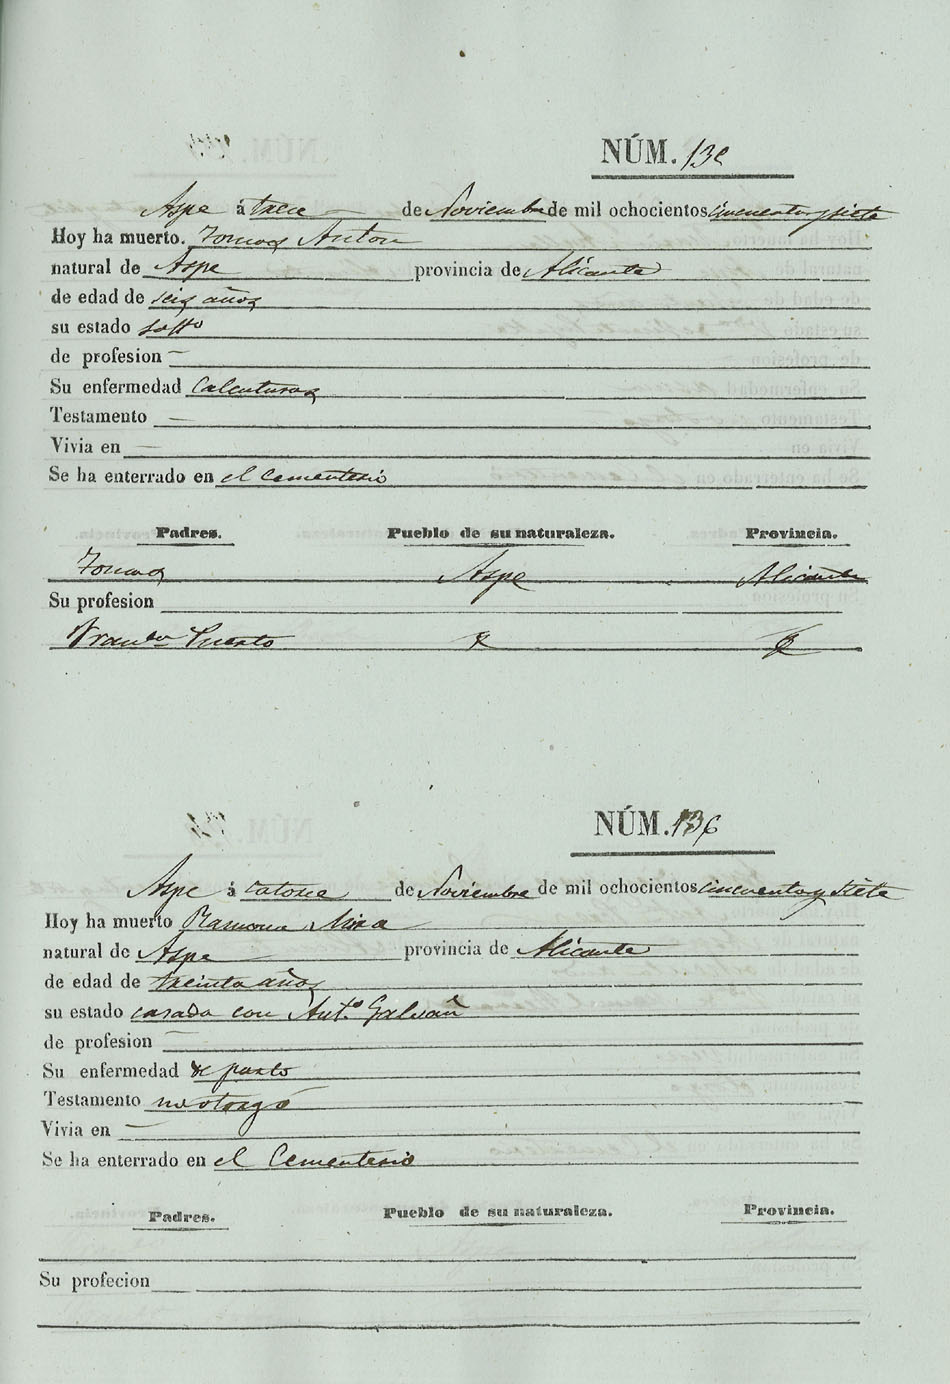 NÚM. 13
Aspe á trece de Noviembre de mil ochocientos cincuenta y siete
Hoy ha muerto. Tomas Anton
natural de Aspe provincia de Alicante
de edad de seis años
su estado
de profesion —
Su enfermedad Calenturas
Testamento —
Vivia en —
Se ha enterrado en el Cementerio
Padres. Pueblo de su naturaleza. Provincia.
Tomas Aspe Alicante
Su profesion
Puerto
NÚM. 136
Aspe á catorce de Noviembre de mil ochocientos cincuenta y siete
Hoy ha muerto Ramona Mira
natural de Aspe provincia de Alicante
de edad de treinta años
su estado casada con Ant.º Galvañ
de profesion
Su enfermedad de parto
Testamento no otorgó
Vivia en —
Se ha enterrado en el Cementerio
Padres. Pueblo de su naturaleza. Provincia.
Su profecion